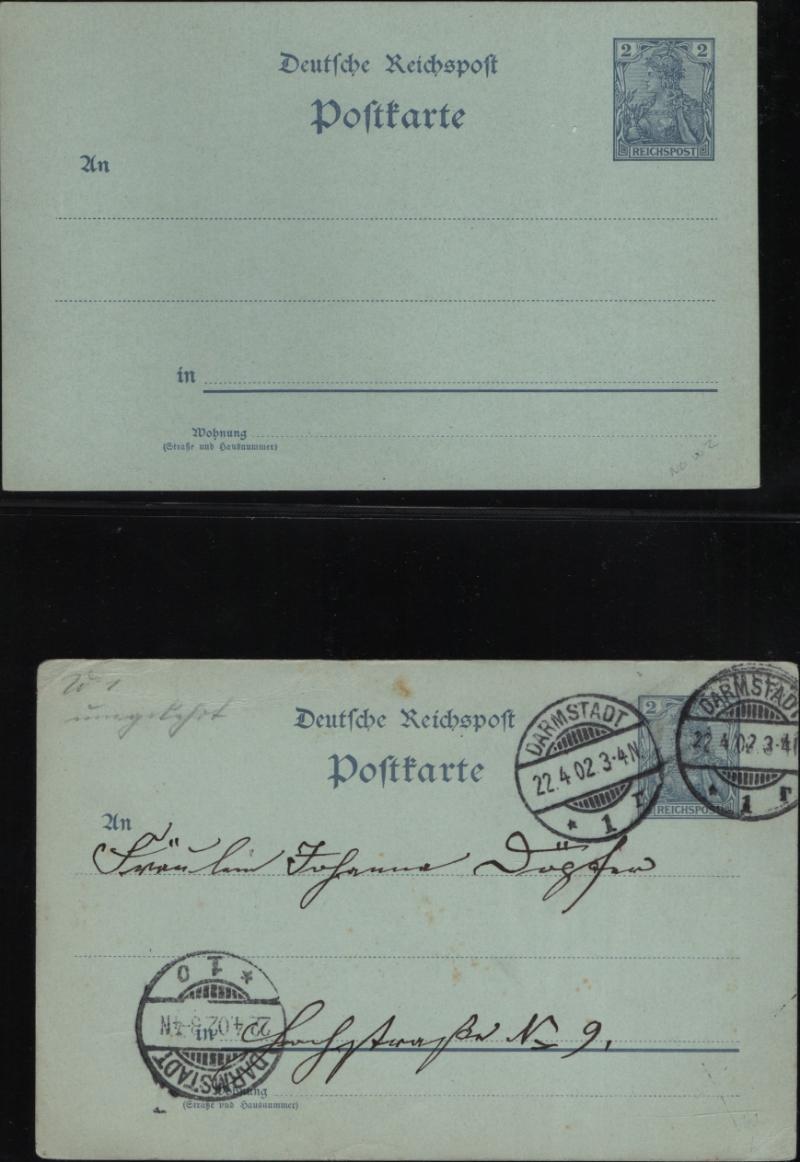 Deutsche Reichspost
2 2
Postkarte
REICHSPOST
An
in
Wohnung
(Straße und Hausnummer)
No WZ
umgekehrt
Deutsche Reichspost
2
DARMSTADT
22.4.02.3-4N.
* 1 r
DARMSTADT
22.4.02.3-4N
* 1 r
Postkarte
REICHSPOST
An
Fräulein Johanna Döpfer
* 1 o
22.4.02.3-4N
DARMSTADT
in Hochstraße No 9.
Wohnung
(Straße und Hausnummer)